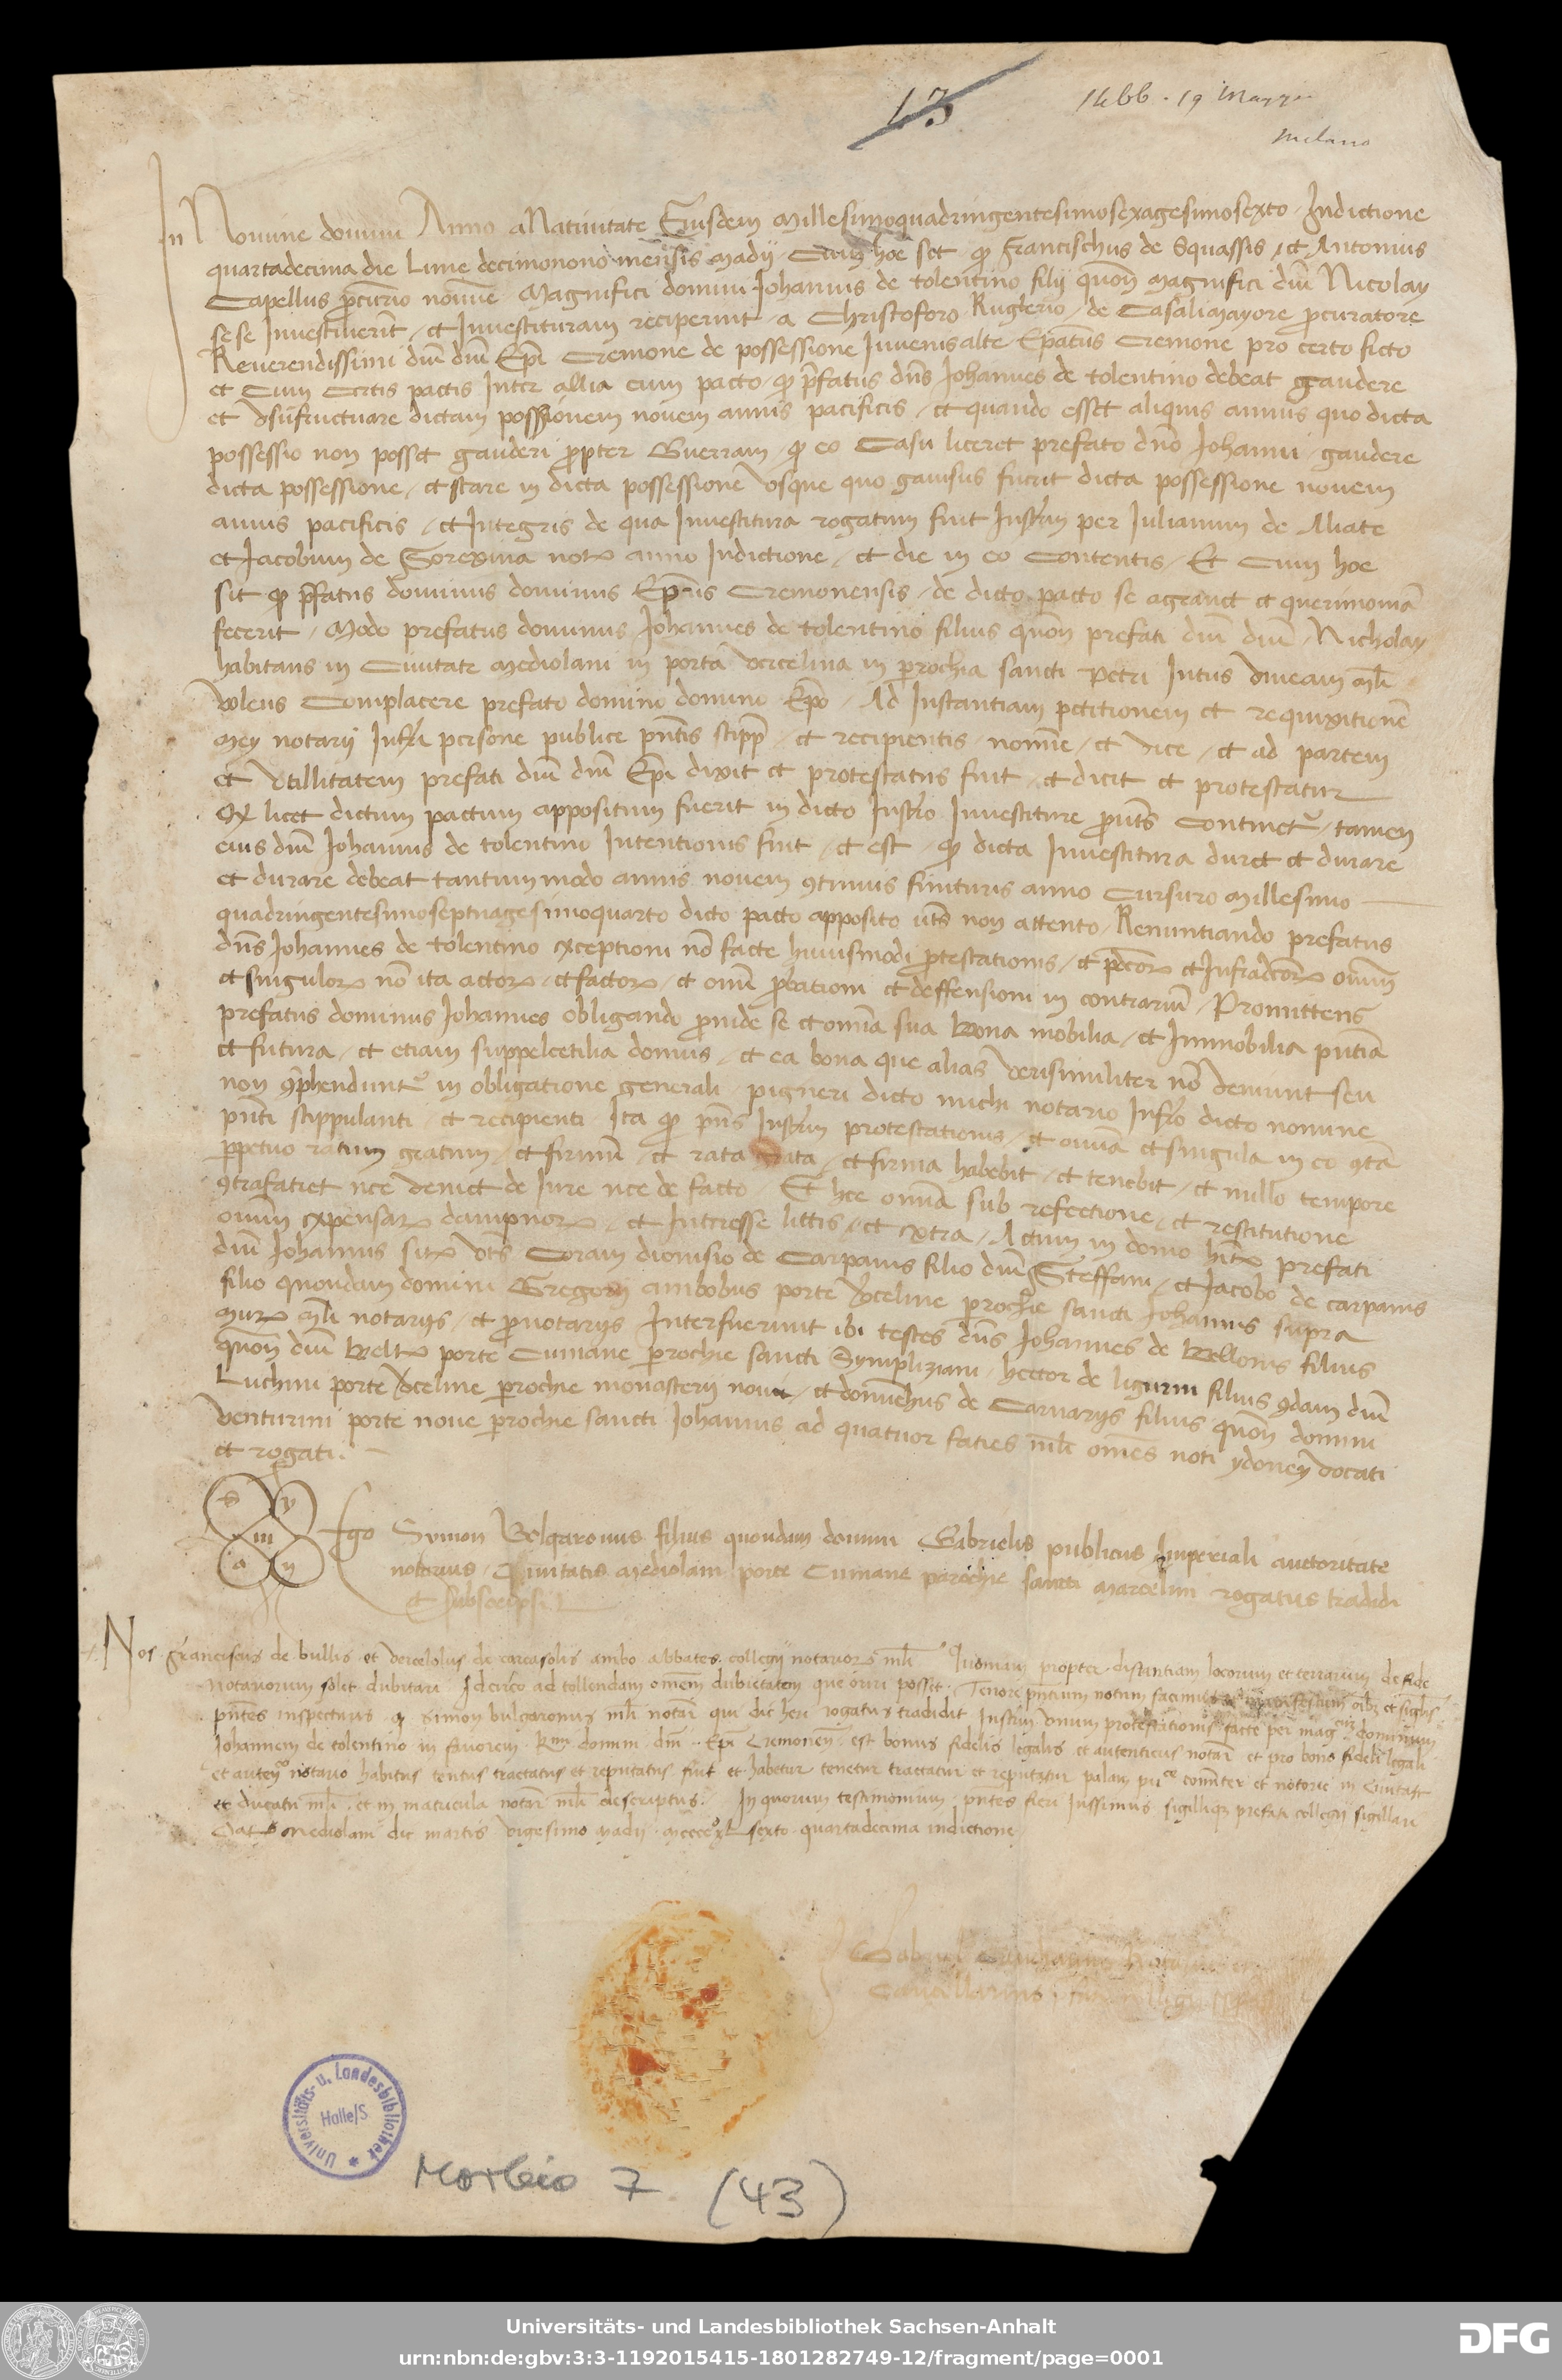 13
1466 . 19 Maggio
Milano
In Nomine domini Anno a Nativitate Eiusdem Millesimoquadringentesimosexagesimosexto Indictione
quartadecima die Lune decimonono mensis Madij Cum hoc sit qꝫ Francischus de Squassis et Antonius
Capellus procurio nomine Magnifici domini Johannis de tolentino filij quon̄ Magnifici dni Nicolay
sese Investiverint et Investituram reciperint a Christoforo Ruglerio de Casalimayore procuratore
Reverendissimi dni dni Epi Cremone de possessione Juvenisalte Epatus Cremone pro certo ficto
et Cum Certis pactis Inter allia cum pacto qꝫ prfatus dns Johannes de tolentino debeat gaudere
et usufructuare dictam possessionem novem annis pacificis et quando esset aliquis annus quo dicta
possessio non posset gauderi propter Guerram qꝫ eo Casu liceret prefato dno Johanni gaudere
dicta possessione et stare in dicta possessione usque quo gavisus fuerit dicta possessione novem
annis pacificis et Integris de qua Investitura rogatum fuit Instrm per Julianum de Aliate
et Jacobum de Sorexina notꝝ anno Indictione et die in eo Contentis Et Cum hoc
sit qꝫ prfatus dominus dominus Epus Cremonensis de dicto pacto se agravet et querimoniā
fecerit Modo prefatus dominus Johannes de tolentino filius quon̄ prefati dni dni Nicholay
habitans in Civitate Mediolani in porta vercelina in parochia sancti Petri Intus vineam Mli
volens Complacere prefato domino domino Epo Ad Instantiam petitionem et requixitionē
Mey notarij Infrti persone publice pntis stipp et recipientis nomine et vice et ad partem
et utillitatem prefati dni dni Epi dixit et protestatus fuit et dicit et protestatur
qꝫ licet dictum pactum appositum fuerit in dicto Instro Investiture prout Continetr tamen
eius dni Johannis de tolentino Intentionis fuit et est qꝫ dicta Investitura duret et durare
et durare debeat tantummodo annis novem 9tinuis finituris anno Cursuro Millesimo
quadringentesimoseptuagesimoquarto dicto pacto apposito uts non attento Renuntiando prefatus
dns Johannes de tolentino exceptioni nō facte huiusmodi protestationis et pdcorꝝ et Infradcorꝝ omniū
et singulorꝝ nō ita actorꝝ et factorꝝ et omni probationi et deffensioni in contrariū Promittens
prefatus dominus Johannes obligando proinde se et omnia sua bona mobilia et Immobilia pntiā
et futura et etiam suppelectilia domus et ea bona que alias verisimiliter nō veniunt seu
non 9prehenduntr in obligatione generali pigneri dicto michi notario Infro dicto nomine
pnti stippulanti et recipienti Ita qꝫ pns Instrm protestationis et omnia et singula in eo 9tā
perpetuo ratum gratum et firmū et rata grata et firma habebit et tenebit et nullo tempore
9trafatiet nec veniet de Jure nec de facto Et hec omnia sub refectione et restitutione
omnī expensarꝝ dampnorꝝ et Interesse littis et extra Actum in domo hitꝝ prefati
dni Johannis sitꝝ uts Coram dionisio de Carpanis filio dni Steffani et Jacobo de carpanis
filio quondam domini Gregorij ambobus porte verceline parochie sancti Johannis supra
murꝝ Mli notarijs et pronotarijs Interfuerunt ibi testes dns Johannes de Bellonis filius
quon̄ dni Beltꝝ porte Cumane parochie sancti Sympliziani hector de ligurni filius 9dam dni
Luchini porte verceline parochie monasterij novi et donichus de Carvarijs filius quon̄ domini
venturini porte nove parochie sancti Johannis ad quatuor faties mli omēs noti ydoney vocati
et rogati
S y
m
o n
Ego Symon Bolgaronus filius quondam domini Gabrielis publicus Imperiali auctoritate
notarius Civitatis Mediolani porte Cumane parochie sancti Marcelini rogatus tradidi
et subscripsi
Nos Franciscus de bullis et vercelolus de carcasolis ambo abbates collegij notariorꝝ mli Quoniam propter distantiam locorum et terrarum de fide
notariorum solit dubitari Idcirco ad tollendam omēm dubietatem que oriri posset Tenore pntium notum facimus et manifestum oibꝫ et siglis
pntes inspecturis qꝫ Simon bulgaronus mli notari qui die heri rogatus tradidit Instrm unum protestationis facte per magcuꝫ dominum
Johannem de tolentino in favorem Rmi domini dni Epi Cremonen est bonus fidelis legalis et autenticus notari et pro bono fideli legali
et autenco notario habitus tentus tractatus et reputatus fuit et habetur tenetur tractatur et reputatur palam puce coniter et notorie in Civitate
et ducatu mli et in matricula notari mli descriptus In quorum testimonium pntes fieri Jussimus sigilliqꝫ prefati collegij sigillari
Dat Mediolani die martis vigesimo Madij Mcccco lxsexto quartadecima indictione
Gabriel
Cavallarius
Universitäts- u. Landesbibliothek
Halle/S
Morbio 7 (43)
Universitäts- und Landesbibliothek Sachsen-Anhalt
urn:nbn:de:gbv:3:3-1192015415-1801282749-12/fragment/page=0001
DFG